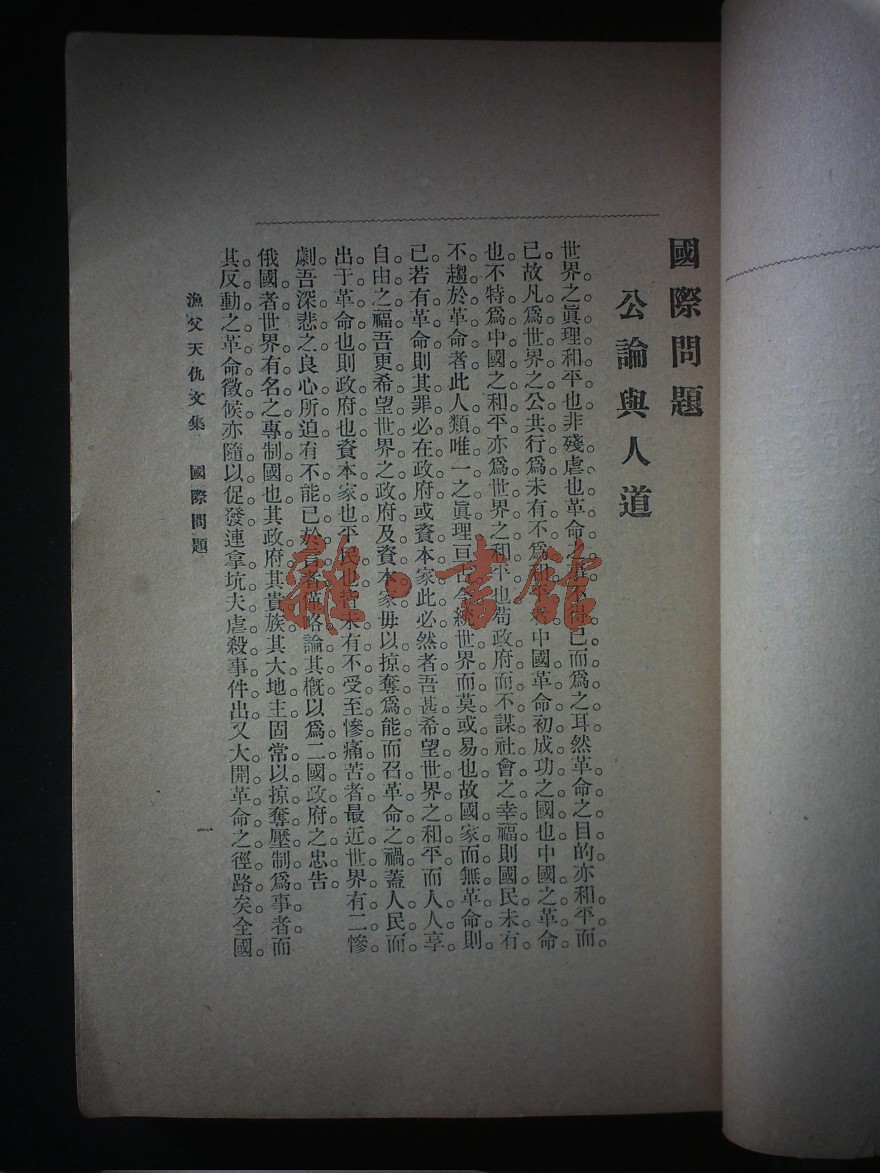 國際問題
公論與人道
世界之眞理和平也非殘虐也革命之不得已而爲之耳然革命之目的亦和平而
已故凡爲世界之公共行爲未有不爲中國革命初成功之國也中國之革命
也不特爲中國之和平亦爲世界之和平也苟政府而不謀社會之幸福則國民未有
不趨於革命者此人類唯一之眞理亘古今統世界而莫或易也故國家而無革命則
已若有革命則其罪必在政府或資本家此必然者吾甚希望世界之和平而人人享
自由之福吾更希望世界之政府及資本家毋以掠奪爲能而召革命之禍蓋人民而
出于革命也則政府也資本家也平民也皆未有不受至慘痛苦者最近世界有二慘
劇吾深悲之良心所迫有不能已於言者謹略論其槪以爲二國政府之忠告
俄國者世界有名之專制國也其政府其貴族其大地主固常以掠奪壓制爲事者而
其反動之革命徵候亦隨以促發連拿坑夫虐殺事件出又大開革命之徑路矣全國
漁父天仇文集 國際問題
一
雜·書館